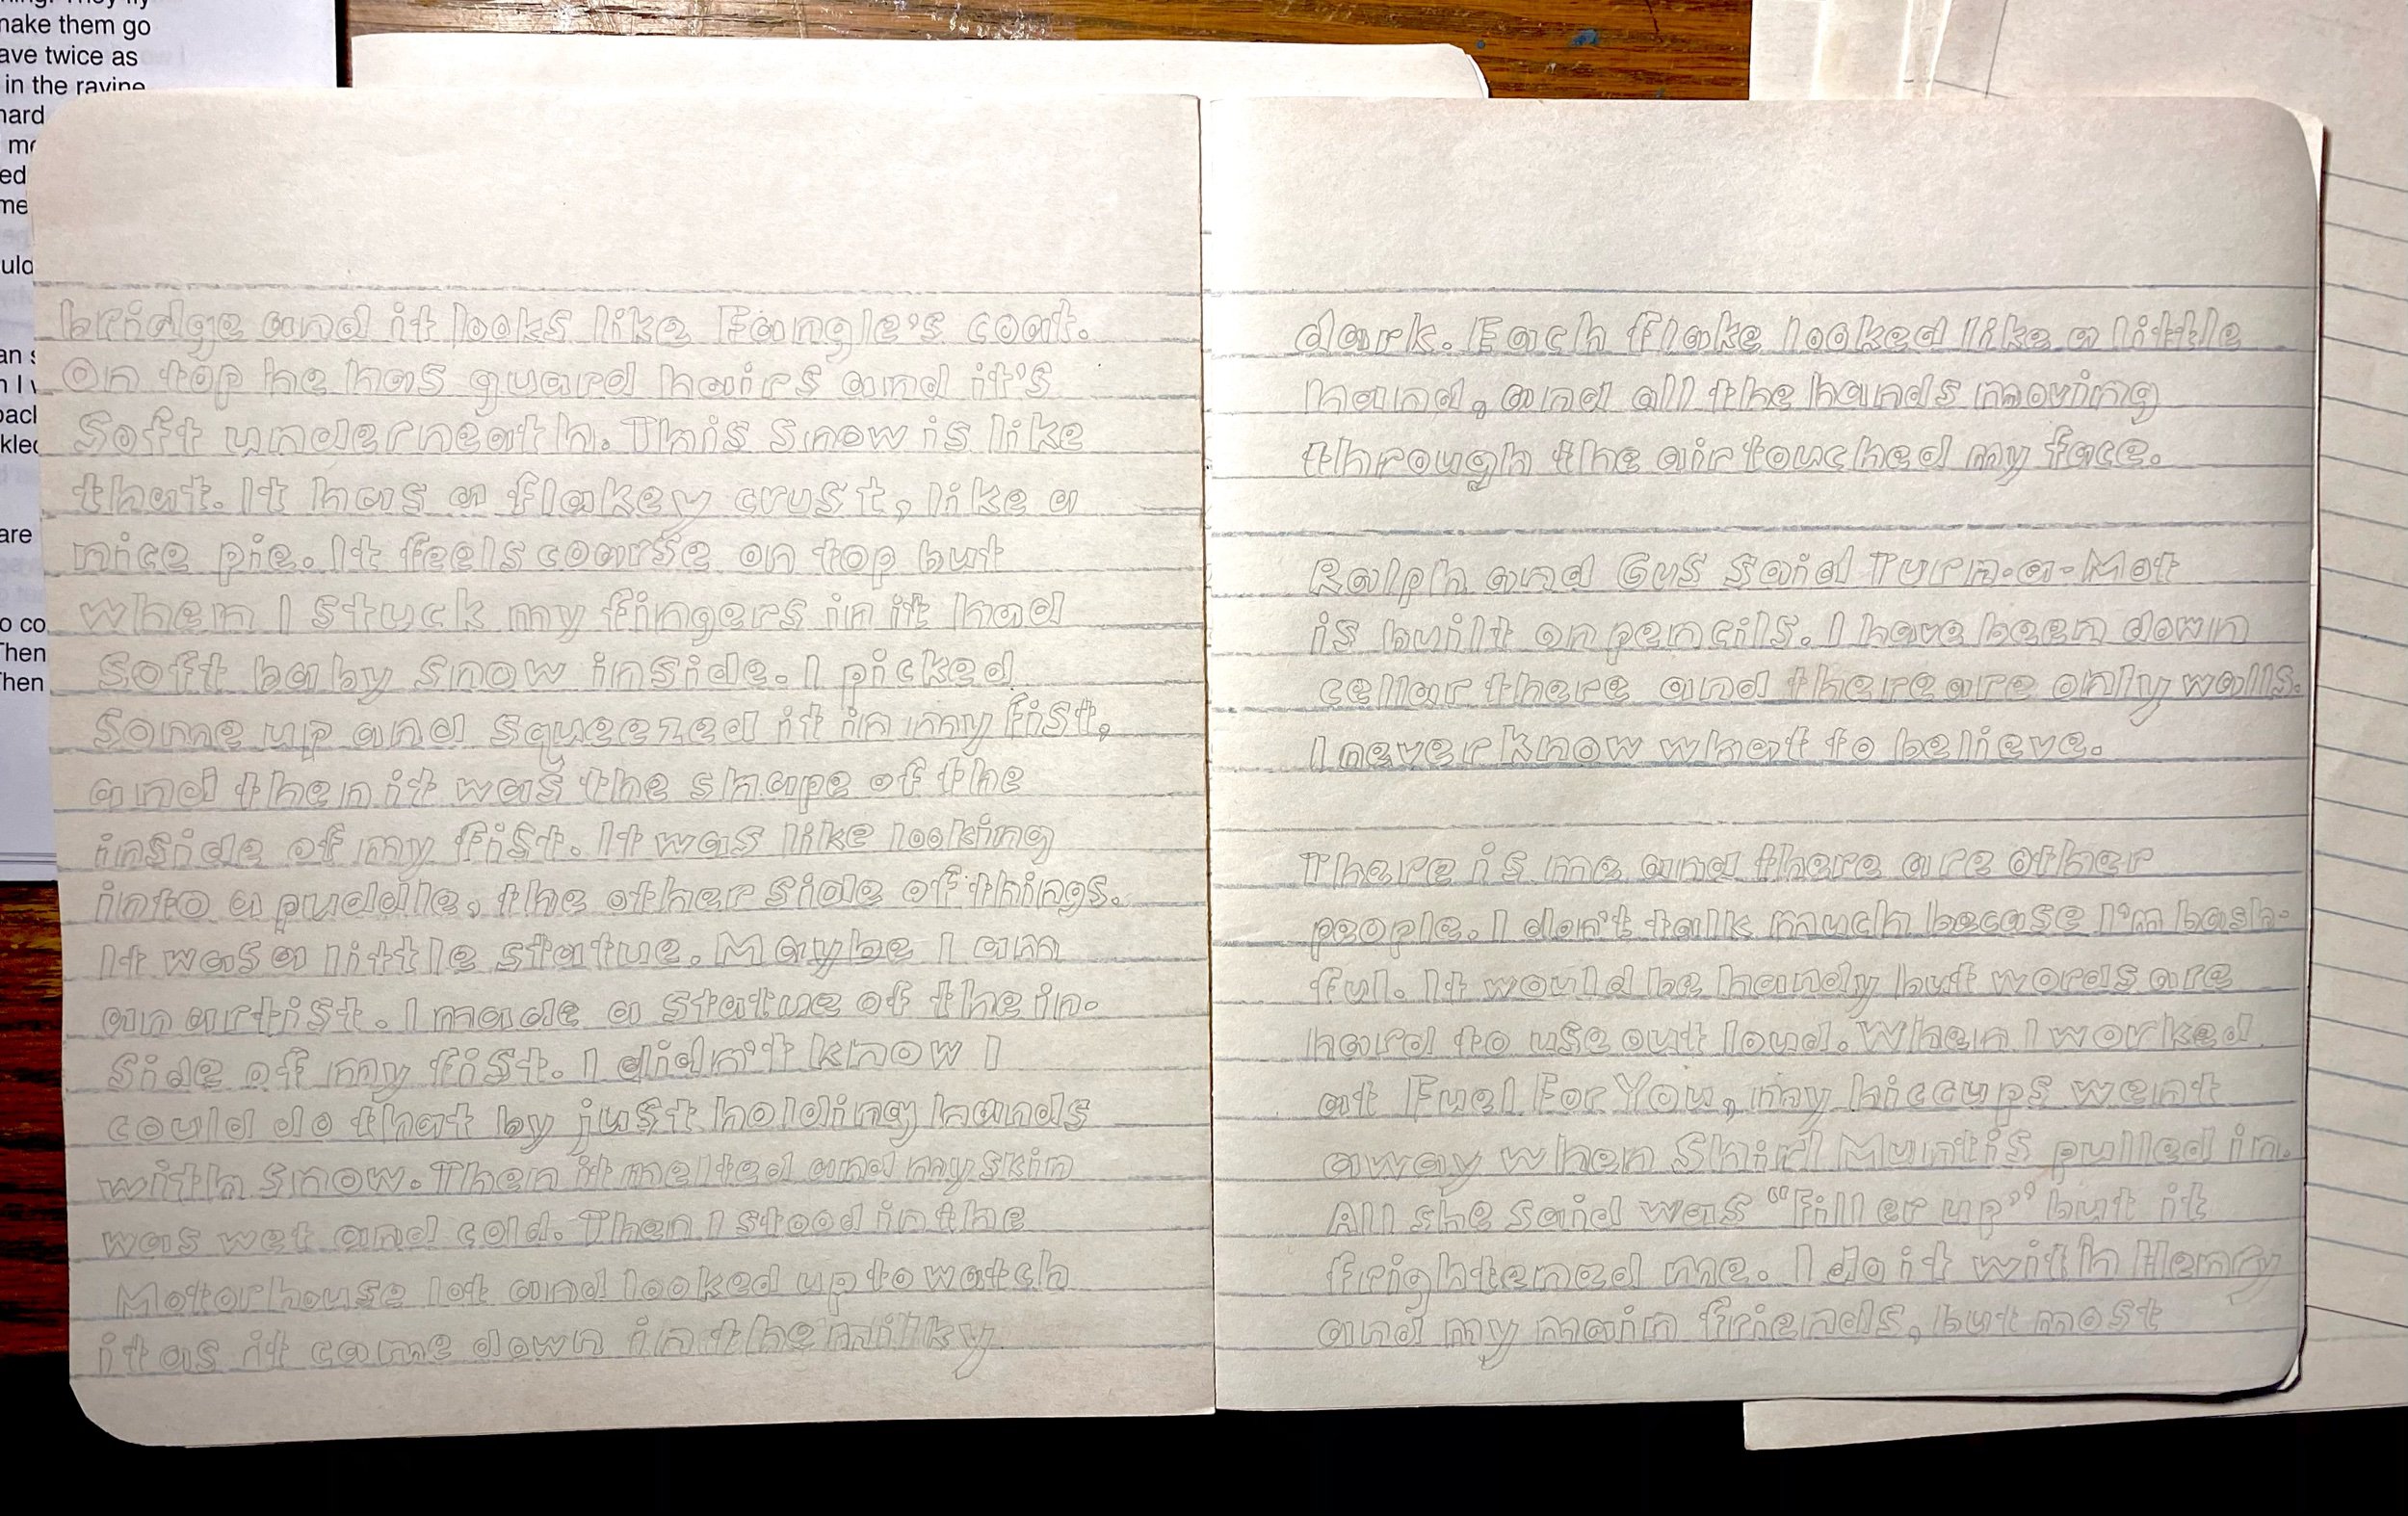 ning. They fly
make them go
ave twice as
in the ravine
hard
ed
me
uld
an
n I
back
kled
are
o co
Then
Then
bridge and it looks like Fangle's coat.
On top he has guard hairs and it's
Soft underneath. This Snow is like
that. It has a flakey crust, like a
nice pie. It feels coarse on top but
when I stuck my fingers in it had
Soft baby snow inside. I picked
Some up and squeezed it in my fist,
and then it was the shape of the
inside of my fist. It was like looking
into a puddle, the other side of things.
It was a little statue. Maybe I am
an artist. I made a statue of the in-
side of my fist. I didn't know I
could do that by just holding hands
with snow. Then it melted and my skin
was wet and cold. Then I stood in the
Motorhouse lot and looked up to watch
it as it came down in the milky
dark. Each flake looked like a little
hand, and all the hands moving
through the air touched my face.
Ralph and Gus Said Turn-a-Mot
is built on pencils. I have been down
cellar there and there are only walls.
I never know what to believe.
There is me and there are other
people. I don't talk much becase I'm bash-
ful. It would be handy but words are
hard to use out loud. When I worked
at Fuel For You, my hiccups went
away when Shirl Muntis pulled in.
All she said was "filler up" but it
frightened me. I do it with Henry
and my main friends, but most